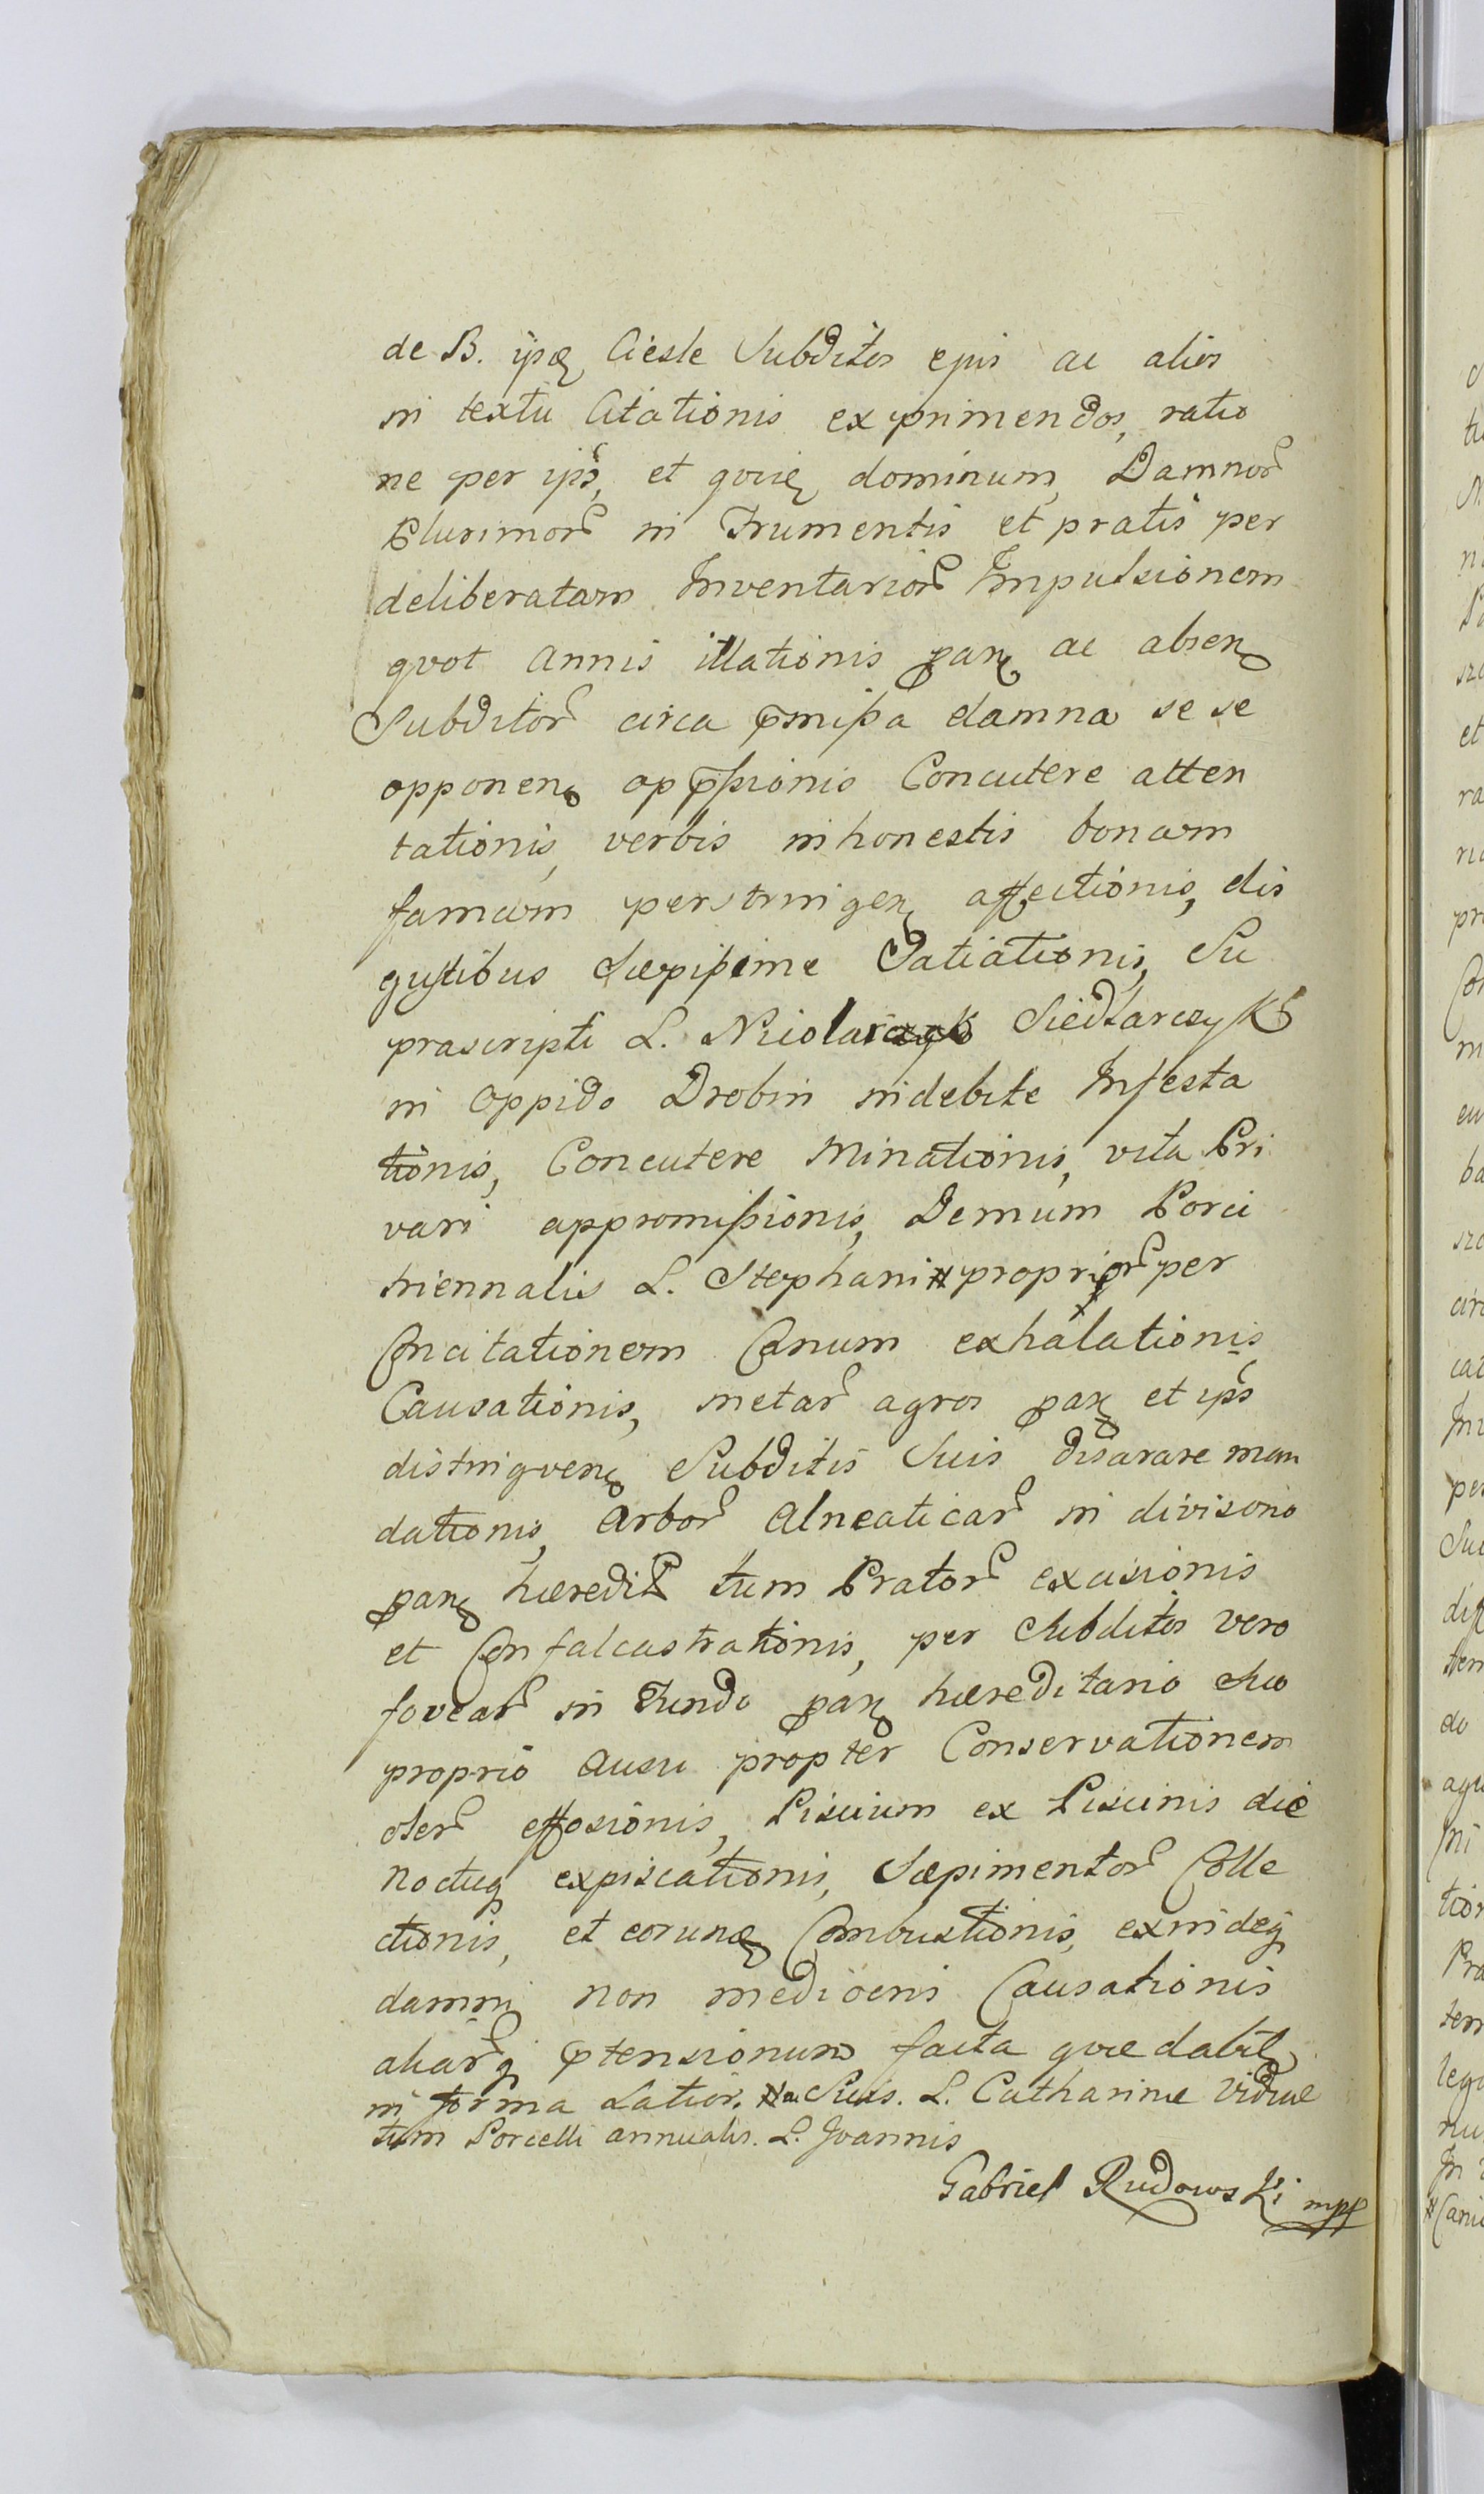 de B. ipsoq Cieśle Subditos ejus ac alios
in textu Citationis exprimendos, ratio
ne per ips, et qvie dominum, Damnor
Plurimor in Frumentis et pratis per
deliberatam Inventarior Impulsionem
qvot Annis illationis par ac absen
Subditor circa pmissa damna se se
opponen oppssionis Concutere atten
tationis, verbis inhonestis bonam
famam perstringen affectionis, dis
gustibus Sæpissime Satiationis, Su
prascripti L. Siedlarczyk
in Oppido Drobin indebite Infesta
tionis, Concutere Minationis, vita Pri
vari appromissionis, Demum Porci
triennalis L. Stephani # proprior per
Concitationem Canum exhalationis
Causationis, metar agros par et ips
distingven Subditis Suis disarare man
dationis, Arbor Alneaticar in divisorio
par hæredit tum Prator excisionis
et Confalcastrationis, per Subditos vero
fovear in Fundo par hæreditario Suo
proprio Ausu propter Conservationem
oler effosionis, Piscium ex Piscinis die
noctuq expiscationis, Sæpimentor Colle
ctionis, et eorund Combustionis, exindeq
damni non mediocris Causationis
aliarq ptensionum facta qvæ dabit
in forma Latior. # a Suis. L. Catharinæ Viduæ
tum Porcelli annualis. L. Joannis
Gabriel Rudowski mpp